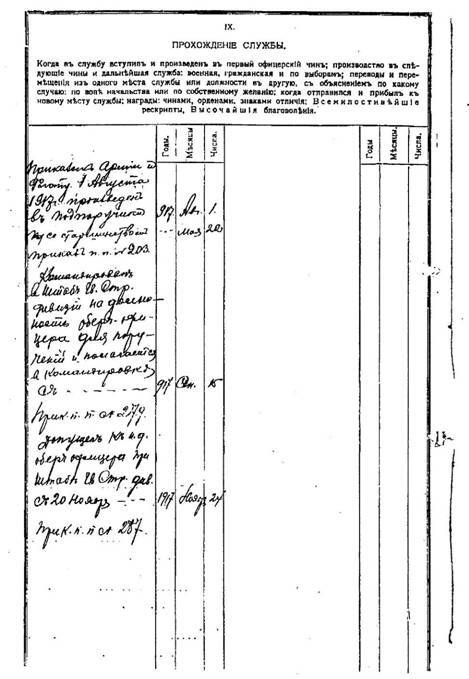 IX.
ПРОХОЖДЕНІЕ СЛУЖБЫ.
Когда въ службу вступилъ и произведенъ въ первый офицерскій чинъ; производство въ слѣ-
дующіе чины и дальнѣйшая служба: военная, гражданская и по выборамъ; переводы и пере-
мѣщенія изъ одного мѣста службы или должности въ другую, съ объясненіемъ по какому
случаю: по волѣ начальства или по собственному желанію; когда отправился и прибылъ къ
новому мѣсту службы; награды: чинами, орденами, знаками отличія; Всемилостивѣйшіе
рескрипты, Высочайшія благоволенія.
Годы. Мѣсяцы. Числа.
Годы. Мѣсяцы. Числа.
Приказомъ Арміи и
Флоту 1 Августа
1917г. произведенъ
въ подпоручики 917 Ав. 1.
со старшинствомъ --- мая 22
приказъ п. п. № 203
Командированъ
въ Штабъ Стр.
дивизіи на долж-
ность оберъ-офи-
цера для пору-
ченій и полагается
въ командировкѣ
съ - - - - 917 Сен. 15
Прик. п. п. № 279.
Допущенъ къ и. д.
оберъ офицера при
Штабѣ Стр. див.
съ 20 Ноября --- 1917 Нояб. 24
Прик. п. п. № 287.